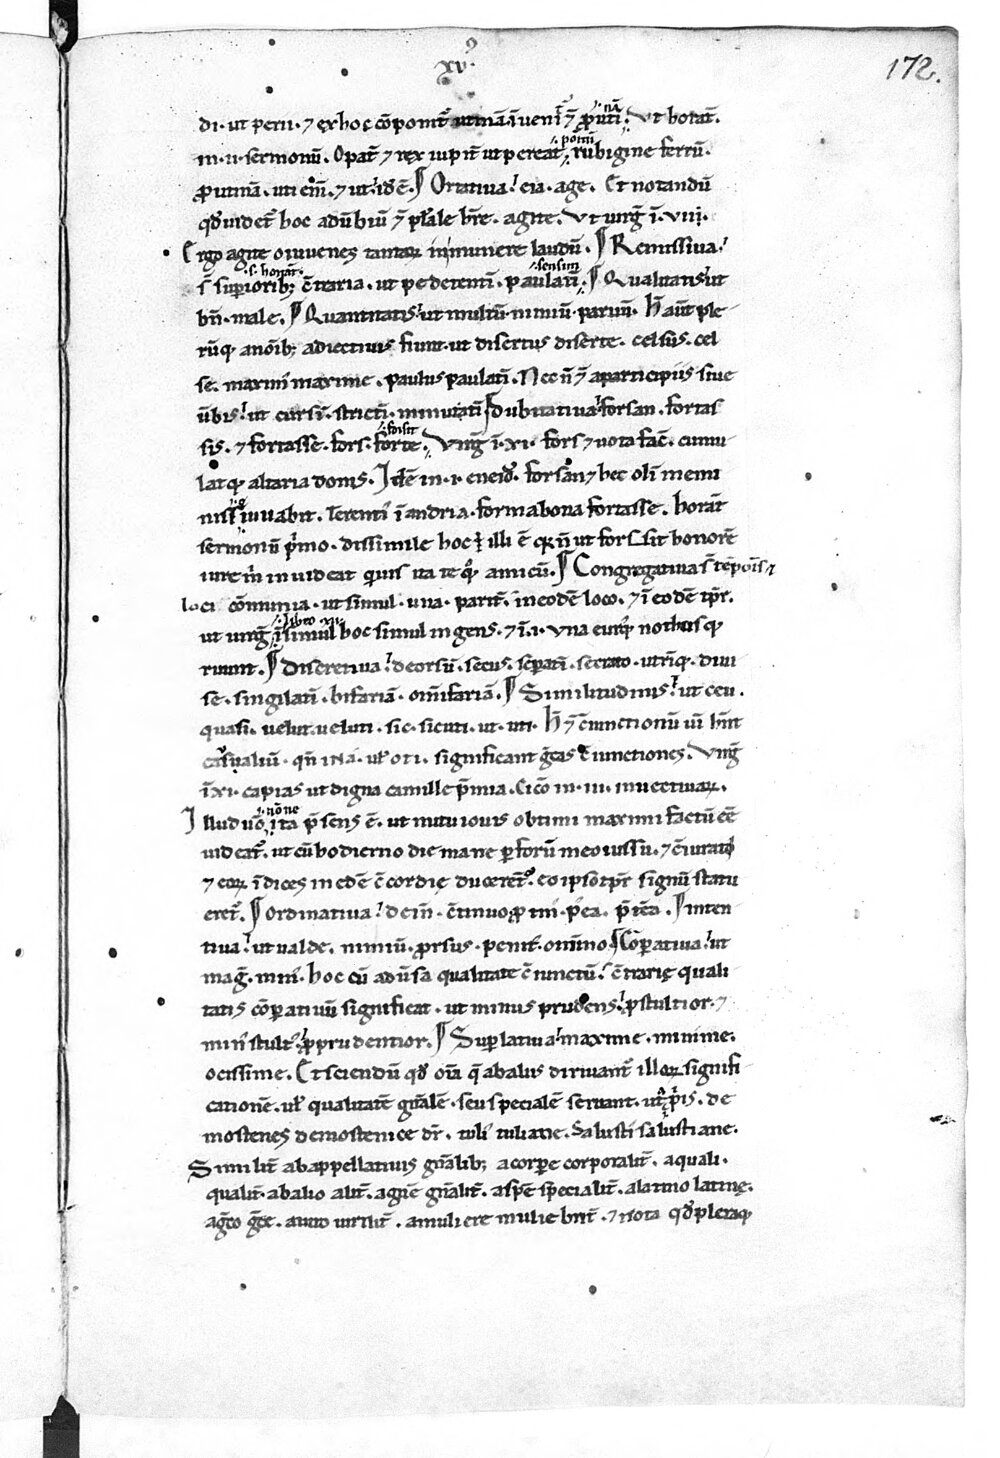 xv⁹
172.
di · ut peni · ⁊ ex hoc cōponit᷑ utinā · invenit᷑ ⁊ ꝓ uti · nā · Ut horat̄ .
in · ii · sermonū . O pat̄ ⁊ rex iupit̄ ut pereat · positū · rubigine ferrū .
ꝓ utinā . uti eni̅ . ⁊ ut᷑ id ē . ¶ Ortativa᷑ eia · age . Et notandū
qđ videt᷑ hoc adūbiū ⁊ pl̄ale hr̄e . agite . Ut virḡ ī . viii .
Ergo agite o iuvenes tantaꝝ in munere laudū . ¶ Remissiva᷑
s̄ supioribꝫ · s · horat̄ · c̄traria . ut pedetenti̅ . paulati̅ · sensim · ¶ Qualitatis᷑ ut
bn̄ · male . ¶ Quantitatis᷑ ut multū · nimiū · parum . H̄ aūt ple
rūqꝫ a noīb; adiectivis fiunt · ut disertus diserte . celsus . cel
se . maximi maxime . paulus paulati̅ . Nec n̄ ⁊ a participiis sive
ūbis᷑ ut cursi̅ · stricti̅ · minutati̅ ¶ Dubitativa᷑ forsan . fortas
sis . ⁊ fortasse . fors . forte · forsit · Virḡ ī . xi . fors ⁊ vota fac̄ . cumu
latqꝫ altaria donis . Idē in . i . eneid᷑ . forsan ⁊ hec oli̅ memi
nisse iuvabit . Terenti᷑ ī andria . forma bona fortasse . horat̄
sermonū p̄mo . dissimile hoc illi ē qr̄ n̄ ut forsit honorē
iure m̄ invideat quivis ita te qꝫ amicū . ¶ Congregativa s̄ tēporis ⁊
loci cōmunia . ut simul . una . parit̄ . in eodē loco . ⁊ ī eodē tp̄r .
ut virḡ ī · libro xii · simul hoc simul ingens . ⁊ ī . i . Una eurꝫ nothusqꝫ
ruunt . ¶ Discretiva᷑ deorsū . secus . sepati̅ . secreto . utriqꝫ . divi
se . singilati̅ . bifariā . omīfariā . ¶ Similitudinis᷑ ut ceu .
quasi . velut . veluti . sic . sicuti . ut . uti . H̄ ⁊ c̄iunctionū vi̅ hn̄t
casualiū . qn̄ ina᷑ . ul̄ oti . significant ḡcas c̄iunctiones . Virḡ
ī xi . capias ut digna camille p̄mia . Cic̄o in . iii . invectivaꝝ .
Illud vō · nōne · ita p̄sens ē . ut nutu iovis obtimi maximi factū eē
videat᷑ . ut cū hodierno die mane p forū meo iussu . ⁊ c̄iurati
⁊ eoꝝ īdices in edē c̄cordię ducerēt᷑ . eo ipso tp̄r signū statu
eret᷑ . ¶ Ordinativa᷑ dein̄ . c̄tinuo ꝓtin᷑ . p᷑ea . p̄tēa . ¶ Inten
tiva᷑ ut valde . nimiū . ꝓrsus . penit᷑ . omnino ¶ Cōparativa᷑ ut
mag̅ . min᷑ . hoc cū adūsa qualitate c̄iunctū᷑ c̄trarię quali
tatis cōparativum significat . ut minus prudens᷑ ꝓ stultior . ⁊
min᷑ stult᷑ ꝓ prudentior . ¶ Suplativa᷑ maxime . minime .
ocissime . Et sciendū qđ oīa q̄ ab aliis dirivant᷑ illoꝝ signifi
cationē . ul̄ qualitatē gn̄alē . seu specialē servant . ut a p̄pris . de
mostenes demostenice dr̄ . tuli tuliane . Salusti salustiane .
Similit̄ ab appellativis gn̄alibꝫ a corpe corporalit̄ . a quali .
qualit̄ . ab alio alit̄ . a gn̄e gn̄alit̄ . a spē specialit̄ . a latino latinę .
a ḡco ḡce . a viro virilit̄ . a muliere muliebrit̄ . ⁊ nota qđ pleraqꝫ